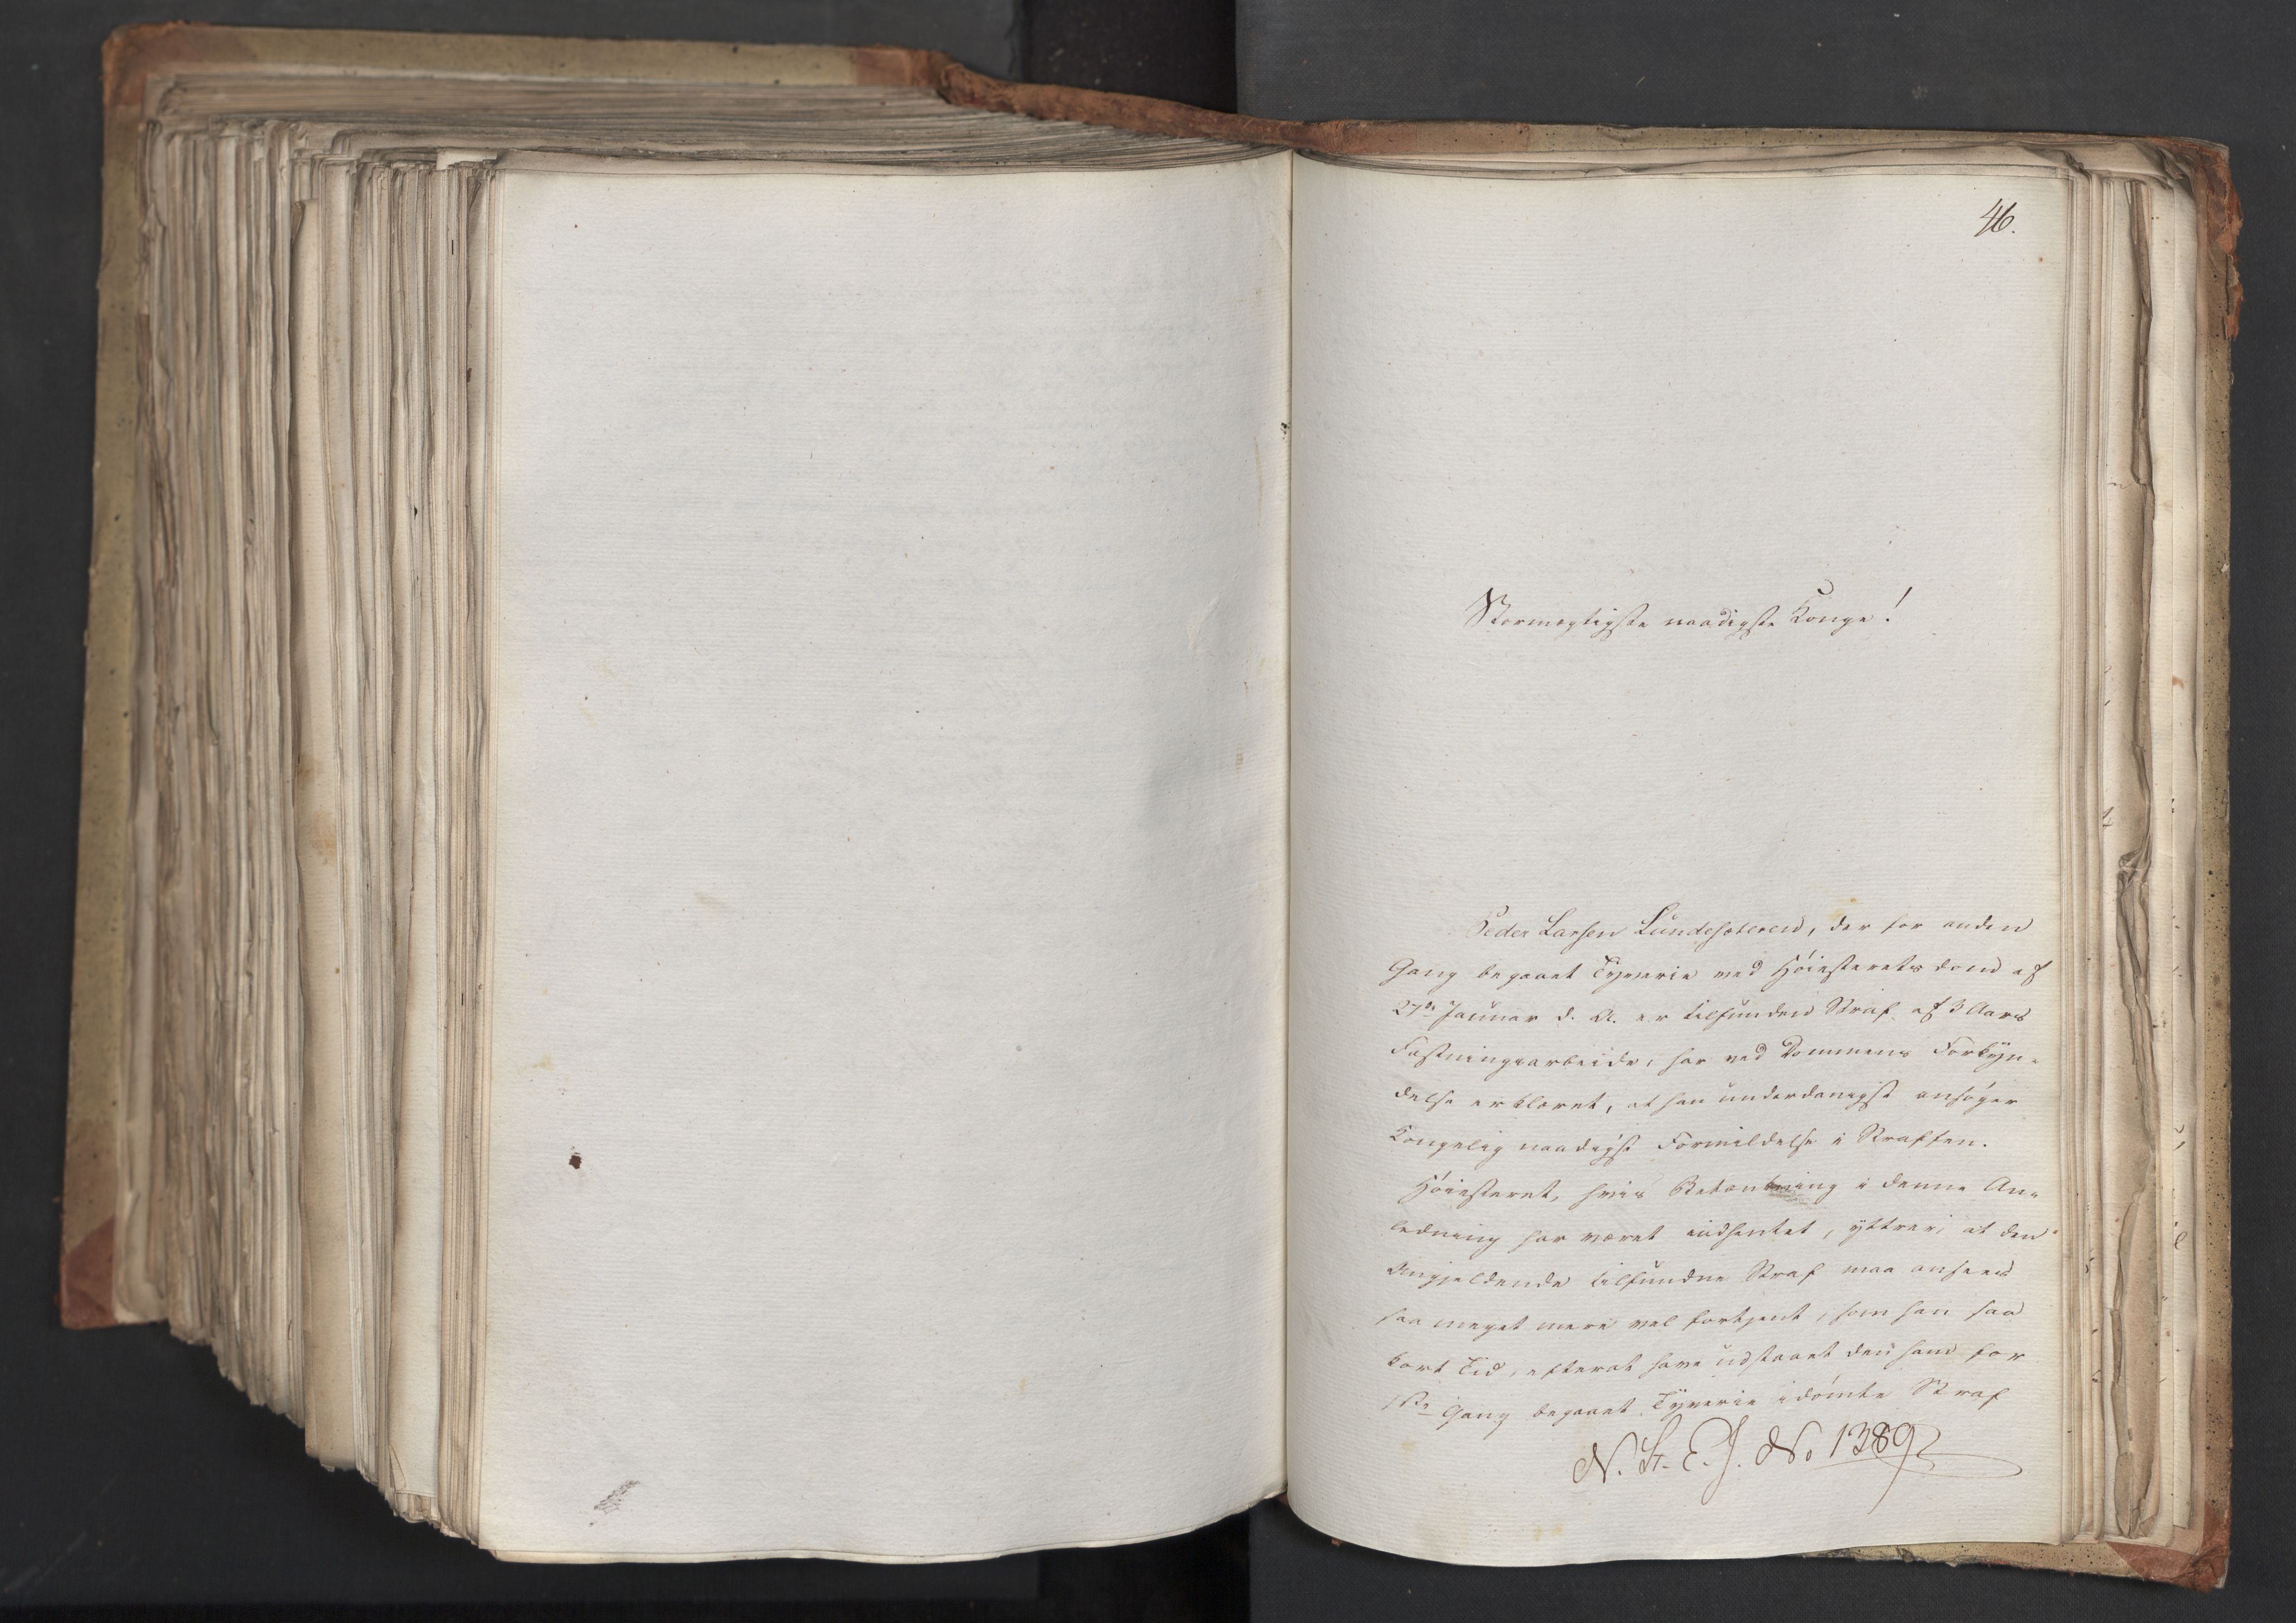 46.
Stormægtigste naadigste Konge!
Peder Larsen Lundesæteren, der for anden
Gang begaaet Tyverie ved Høiesterets dom af
27de Januar d. A. er tilfunden Straf af 3 Aars
Fæstningsarbeide, har ved Dommens Forkyn-
delse erklæret, at han underdanigst ansøger
Kongelig naadigst Formildelse i Straffen.
Høiesteret, hvis Betænkning i denne An-
ledning har været indhentet, yttrer, at den
Angjeldende tilfundne Straf maa ansees
saa meget mere vel fortjent, som han saa
kort Tid, efterat have udstaaet den ham for
1ste Gang begaaet Tyverie idømte Straf
N. St. E. J. No 1389